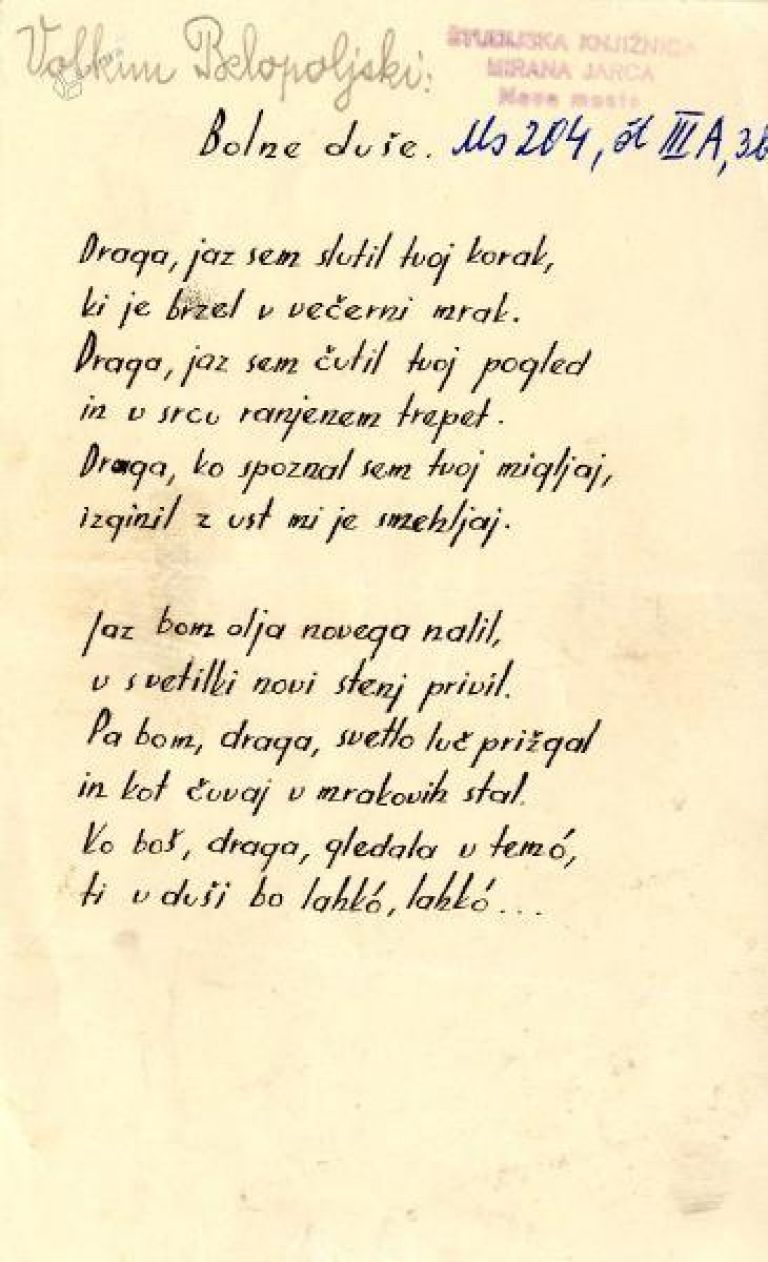 Volkim Belopoljski:
ŠTUDIJSKA KNJIŽNICA
MIRANA JARCA
Novo mesto
Bolne duše.
Ms 204, št III A, 3b
Draga, jaz sem slutil tvoj korak,
ki je brzel v večerni mrak.
Draga, jaz sem čutil tvoj pogled
in v srcu ranjenem trepet.
Draga, ko spoznal sem tvoj migljaj,
izginil z ust mi je smehljaj.
Jaz bom olja novega nalil,
v svetilki novi stenj privil.
Pa bom, draga, svetlo luč prižgal
in kot čuvaj v mrakovih stal.
Ko boš, draga, gledala v temó,
ti v duši bo lahkó, lahkó...